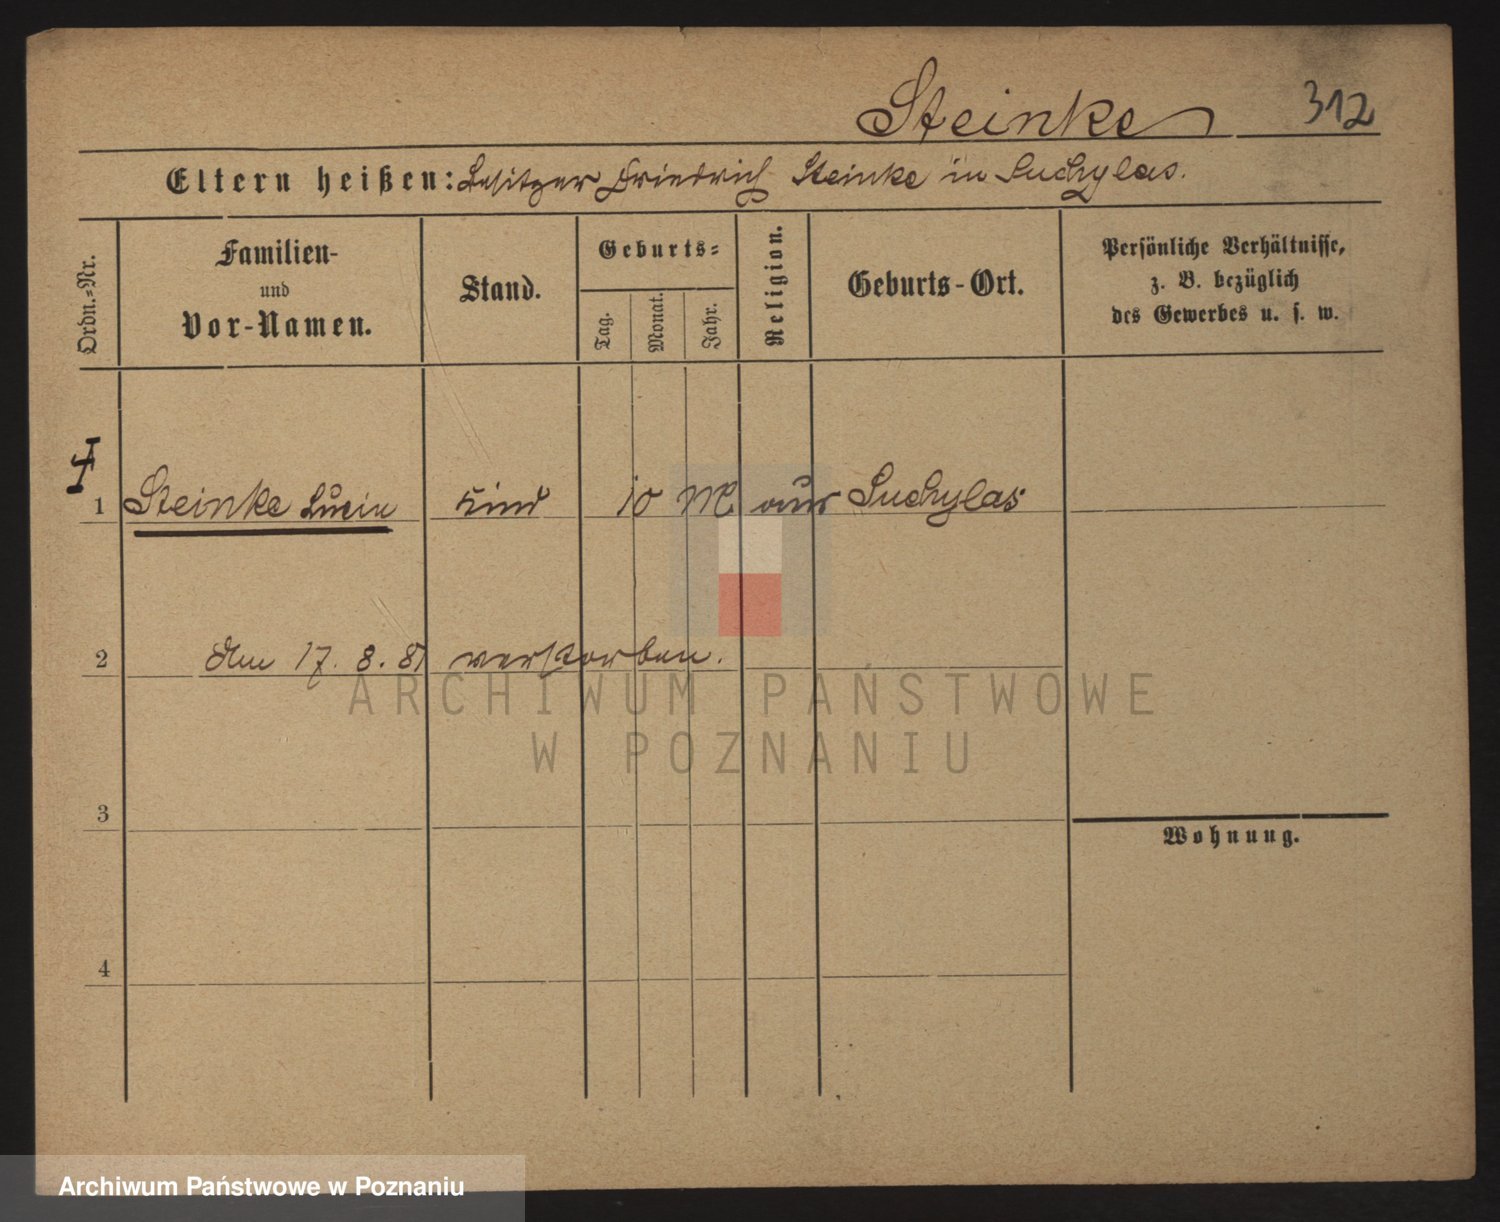 Steinke 312
Eltern heißen: Besitzer Friedrich Steinke in Suchylas.
Ordn.-Nr.
Familien-
und
Vor-Namen.
Stand.
Geburts-
Tag.
Monat.
Jahr.
Religion.
Geburts-Ort.
Persönliche Verhältnisse,
z. B. bezüglich
des Gewerbes u. s. w.
1 Steinke Lucie Kind 10 M aus Suchylas
2 Am 17. 8. 81 verstorben.
ARCHIWUM PAŃSTWOWE
W POZNANIU
3
Wohnung.
4
Archiwum Państwowe w Poznaniu